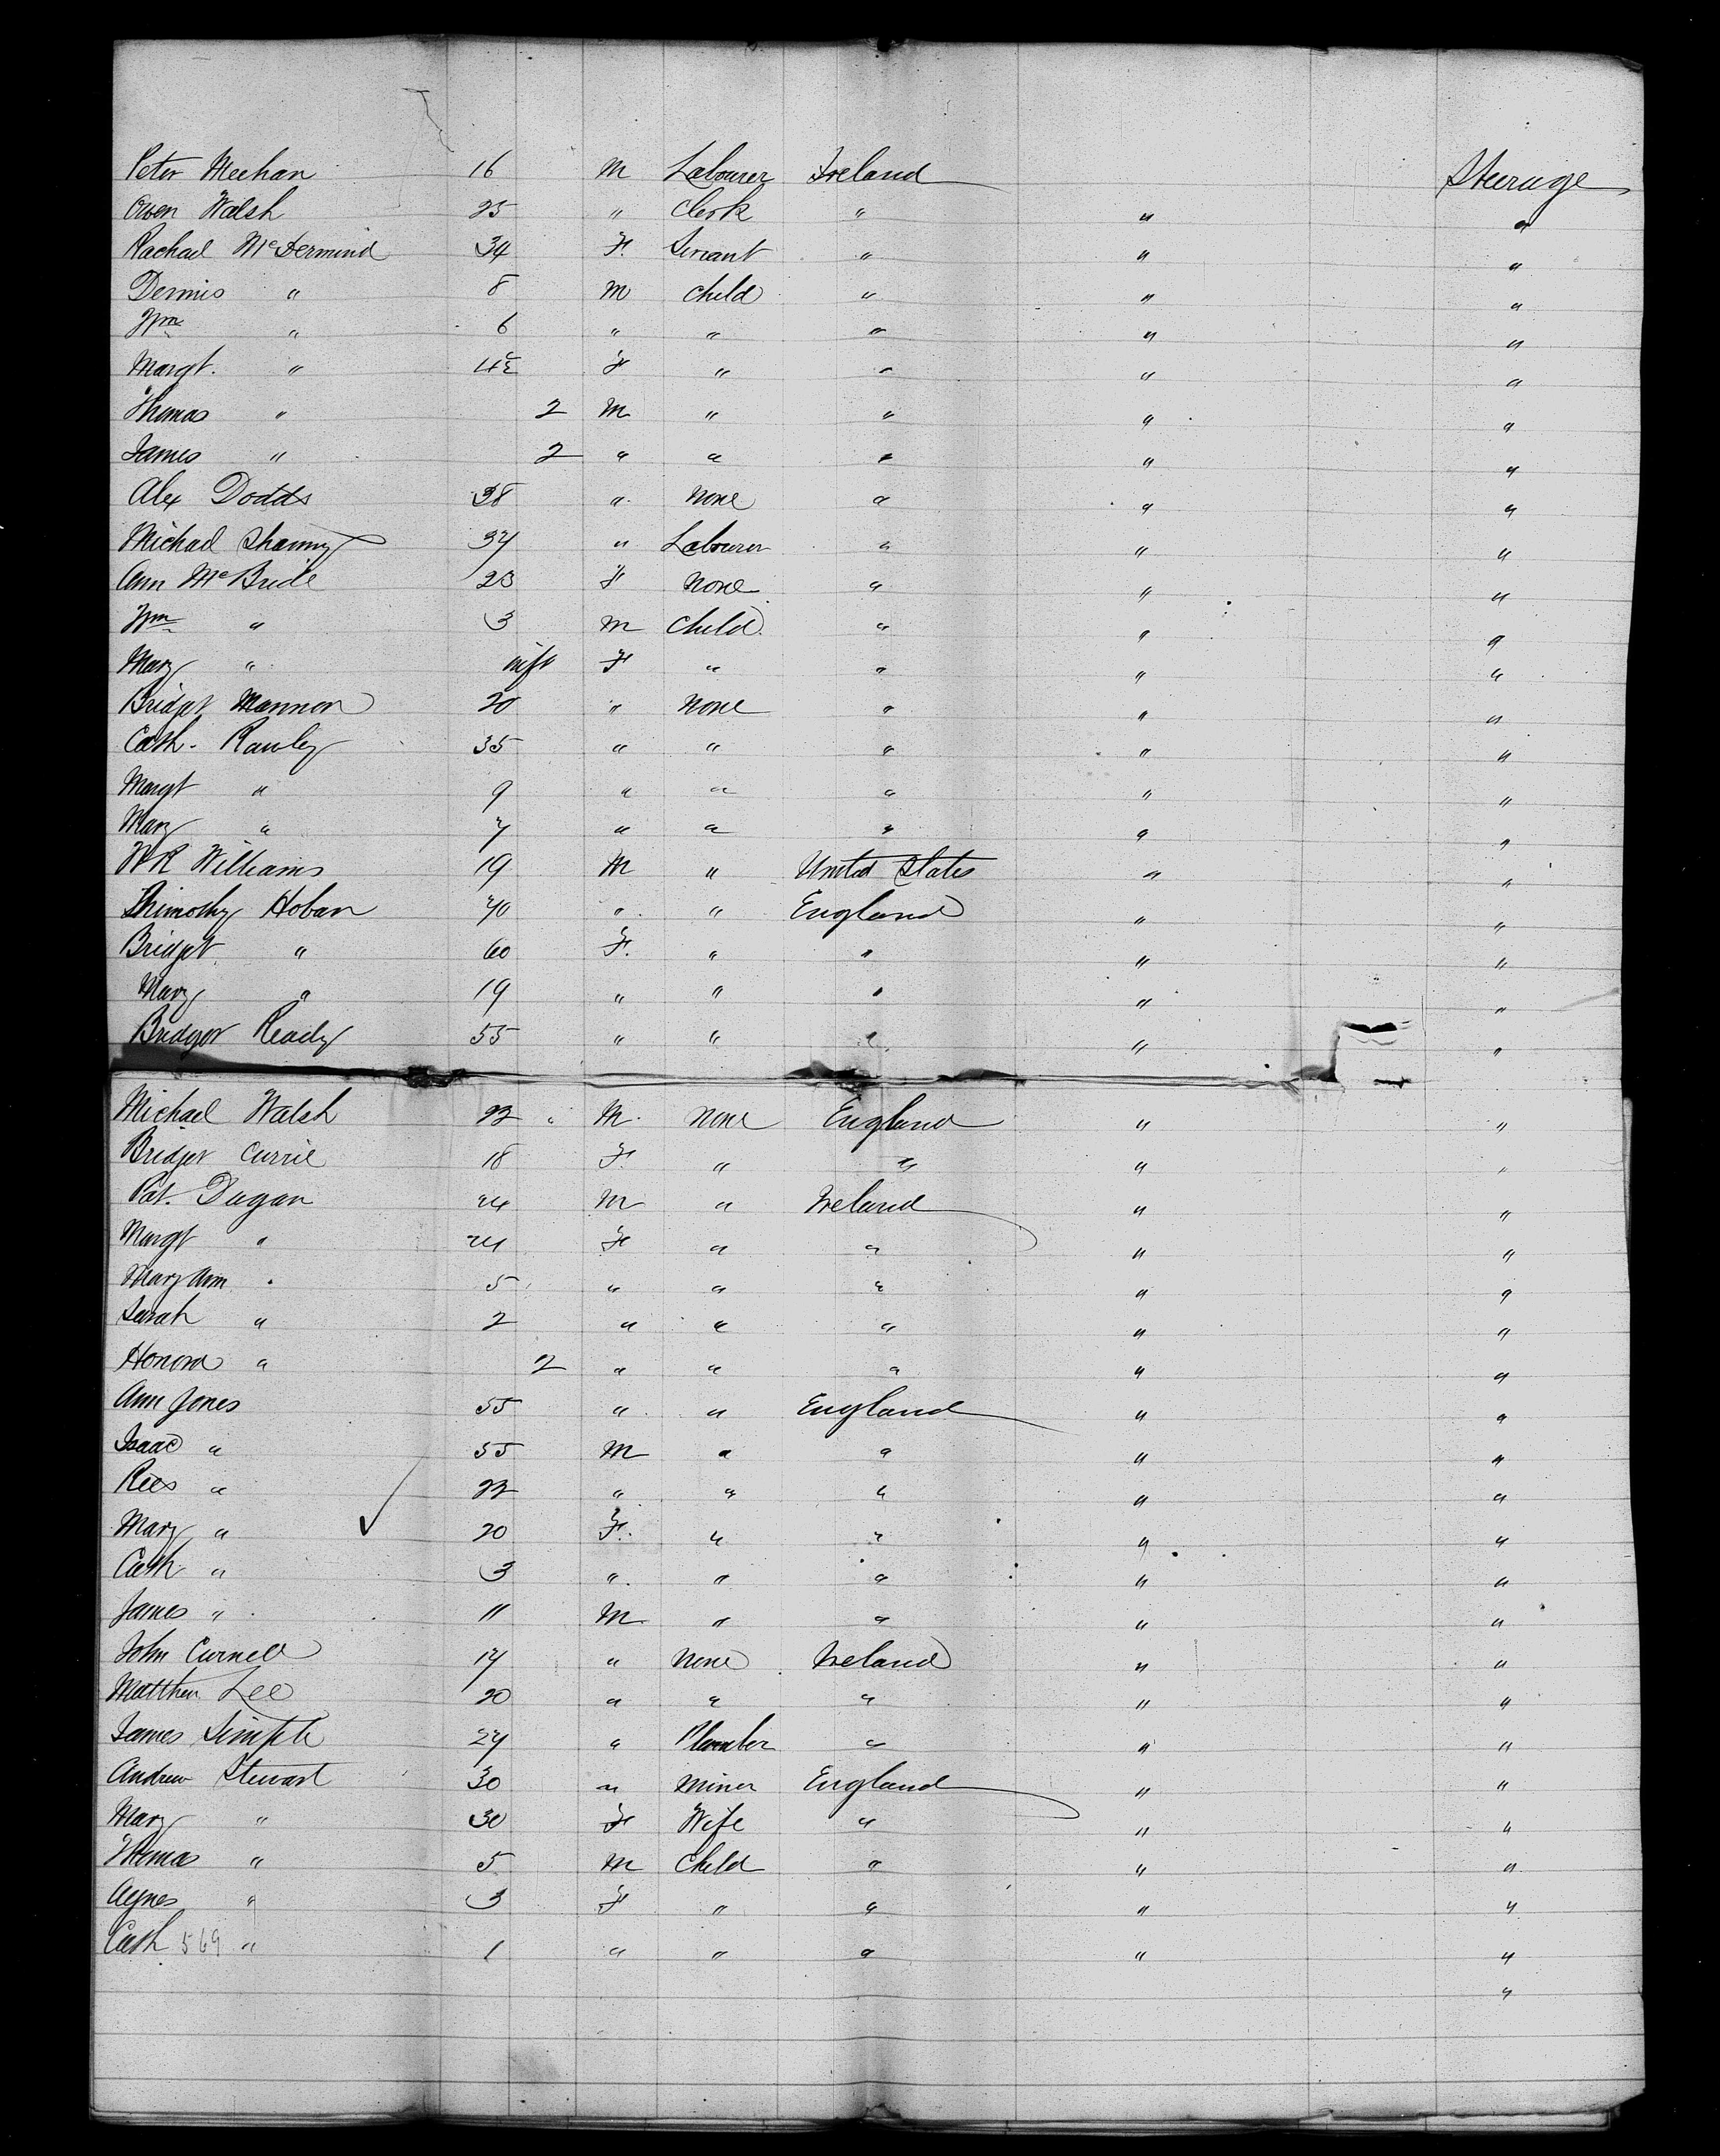 Peter Meehan 16 M Labourer Ireland Steerage
Owen Walsh 25 " Clerk " " "
Rachael McDermind 34 F. Servant " " "
Dennis " 8 M Child " " "
Wm " 6 " " " " "
Margt. " F " " " "
Thomas " 2 M " " " "
James " 2 " " " " "
Alex Dodds 38 " None " " "
Michael 37 " Labourer " " "
Ann McBride 23 F None " " "
Wm " 3 M Child " " "
Mary " inft F " " " "
Bridget Mannon 20 " None " " "
Cath. Rawley 35 " " " " "
Margt " 9 " " " " "
Mary " 7 " " " " "
W R Williams 19 M " United States " "
Thimothy Hoban 70 " " England " "
Bridget " 60 F. " " " "
Mary " 19 " " " " "
Bridget Ready 55 " " " " "
Michael Walsh 22 " M. None England " "
Bridget Currie 18 F. " " " "
Pat. Dugan 24 M " Ireland " "
Margt " 24 F " " " "
Mary Ann " 5 " " " " "
Sarah " 2 " " " " "
Honora " 2 " " " " "
Ann Jones 55 " " England " "
Isaac " 55 M " " " "
Rees " 22 " " " " "
Mary " ✓ 20 F. " " " "
Cath " 3 " " " " "
James " 11 M " " " "
John 17 " None Ireland " "
Matthew Lee 20 " " " " "
James Simple 27 " Plumber " " "
Andrew Stewart 30 " Miner England " "
Mary " 30 F Wife " " "
Thomas " 5 M Child " " "
Agnes " 3 F " " " "
Cath 569 " 1 " " " " "
"